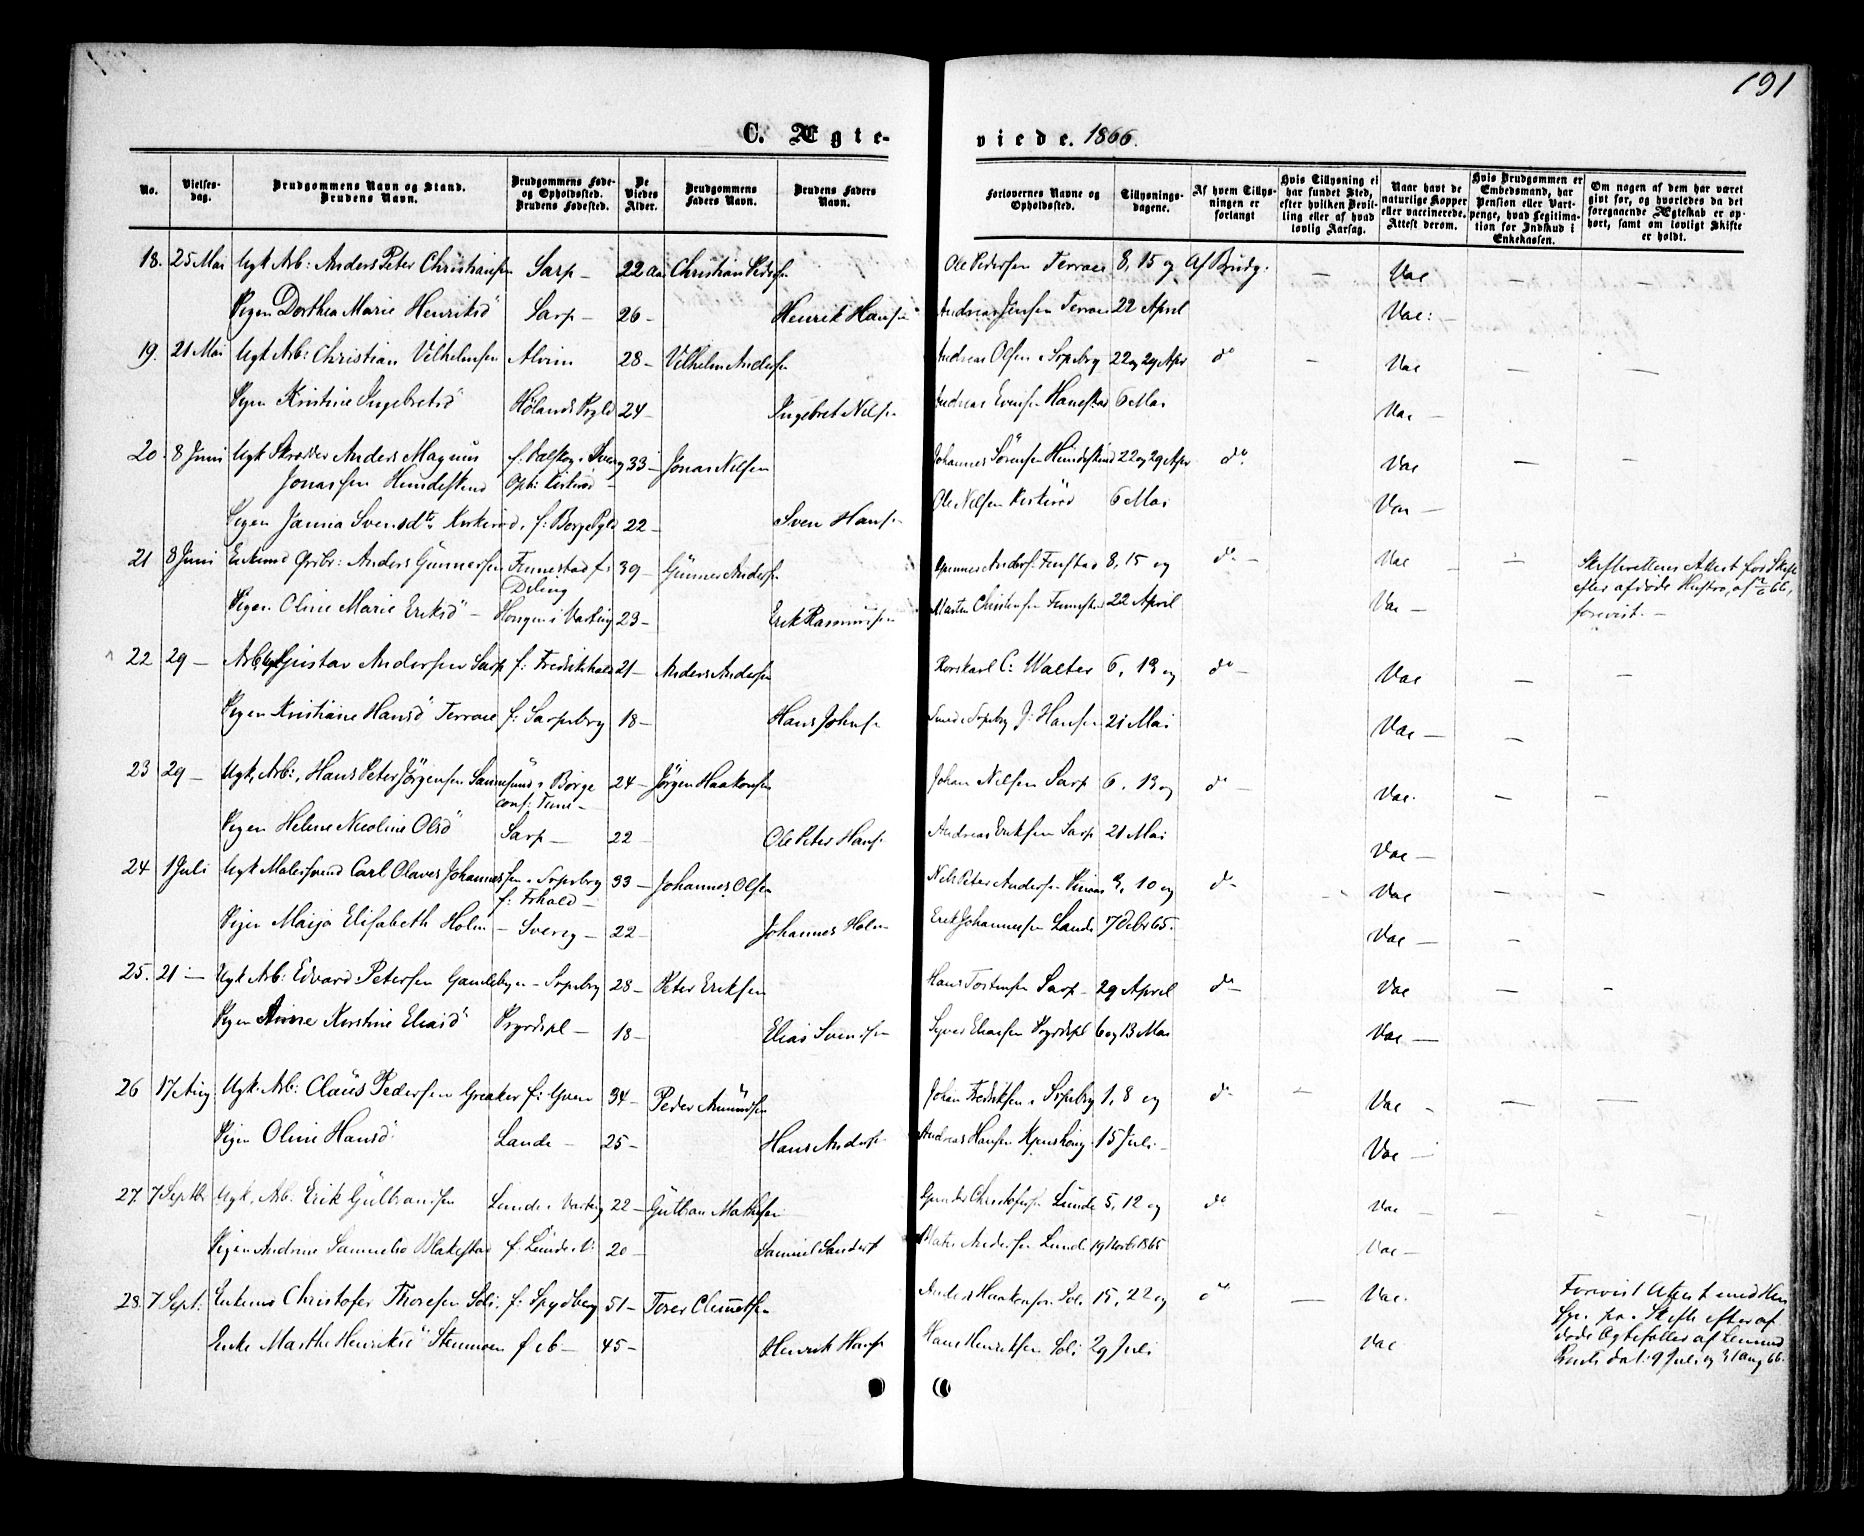 191
C. Ægteviede. 1866.
No. | Vielsesdag. | Brudgommens Navn og Stand. Brudens Navn. | Brudgommens Føde- og Opholdssted. Brudens Fødested. | De Viedes Alder. | Brudgommens Faders Navn. | Brudens Faders Navn. | Forlovernes Navne og Opholdssted. | Tillysningsdagene. | Af hvem Tillysningen er forlangt | Hvis Tillysning ei har fundet Sted, efter hvilken Bevilling eller af hvad lovlig Aarsag. | Naar havt de naturlige Kopper eller vaccinerede. Attest derom. | Hvis Brudgommen er Embedsmand, har Pension eller Vartpenge, hvad Legitimation for Indskud i Enkekassen. | Om nogen af dem har været givt før, og hvorledes da det foregaaende Ægteskab er ophørt, samt om lovligt Skifte er holdt.
18. 25 Mai Ugk Arb: Anders Peter Christiansen Sarp – 22 aar Christian Peders. Ole Pedersen Terrace 8, 15 og Af Brudg. – Vac – –
Pigen Dorthea Marie Henriksd Sarp – 26 – Henrik Hansen Andreas Jensen Terrace 22 April Vac: –
19. 21 Mai Ugk Arb: Christian Vilhelmsen Alvim 28 – Vilhelm Anders. Andreas Olsen Srpsbrg 22 og 29 Apr d° – Vac – –
Pigen Kristine Ingebretsd Hølands Prgld 24 – Ingebret Nils. Andreas Evensen Hanestad 6 Mai Vac –
20. 8 Juni Ugk Skrædder Anders Magnus f. Dalskog i Sverg 33 – Jonas Nilsen Johannes Sørensen Hundeskind 22 og 29 Apr d° Vac – –
Jonassen Hundeskind Oph:
Pigen Janna Svensdt f: Borge Pgld 22 – Sven Hans. Ole Nilsen 6 Mai Vac –
21 8 Juni Enkemd Anders Gunnersen Funnestad f: 39 – Gunner Anders. Gunner Anders. 8, 15 og d° – Vac – – Skifterettens Attest for Skifte
Diling efter afdøde Hustru, af
Pigen Oline Marie Eriksd – i Varteig 23 – Erik Rasmuss. Martin Christensen 22 April Vac – forevist. –
22 29 – Arb. Ugk Gustav Andersen Sarp f: Fredrikshald 21 – Anders Anders. C: Walter 6, 13 og d° – Vac – –
Pigen Kristine Hansd Terrace f: Sarpsbrg 18 – Hans Johns. Smed i Srpsbrg J: Hansen 21 Mai Vac – –
23 29 – Ugk, Arb:, Hans Peter Jørgensen Sannesund i Borge 24 – Jørgen Haakons. Johan Nilsen Sarp 6, 13 og d° – Vac. – –
conf: Tune –
Pigen Helene Nicoline Olsd Sarp – 22 – Ole Peter Hans. Andreas Eriksen Sarp 21 Mai Vac –
24 1 Juli Ugk Malersvend Carl Olaves Johannessen – Srpsbrg 33 – Johannes Olsen Nils Peter Anders. 3, 10 og d° Vac – –
f: Frhald –
Pigen Maija Elisabeth Holm – Sverig – 22 – Johannes Holm Erik Johannesen Lande 65. Vac – –
25. 21 – Ugk Arb: Edvard Petersen Gamlebyen – Srpsbrg 28 – Peter Eriksen Hans Sarp – 29 April d° – Vac – –
Pigen Anne Kristine Eliasd Prgrdspl – 18 – Elias Svends. Syver Eliassen Prgrdspl 6 og 13 Mai Vac –
26 17 Aug Ugk. Arb: Claus Pedersen Greaker f: 34 – Peder Amunds. Johan Fredriksen i Srpsbrg 1, 8 og d° – Vac – – –
Pigen Oline Hansd Lande – 25 – Hans Anders. Andreas Hansen 15 Juli – Vac –
27. 7 Septbr Ugk. Arb. Erik Gulbrandsen Lunde i Varteig 22 – Gulbran Mathis. Gunder Christofers. Lunde 5, 12 og d° Vac – – – –
Pigen Andrine Samuelsd Blakestad f: Lunde V: 20 – Samuel Anders. Lunde 19 1865 Vac –
28. 7 Sept: Enkemd Christofer Thoresen Soli f: Spydberg 51 – Torer Clemets. Anders Haakonsen Soli 15, 22 og d° – Vac. Forevist Attest med Hen
syn paa Skifte efter af
Enke Marthe Henriksd f. eb – 45 – Henrik Hans. Hans Henriksen Soli 29 Juli Vac døde Ægtefæller af
dat: 9 Juli og 31 aug 66.